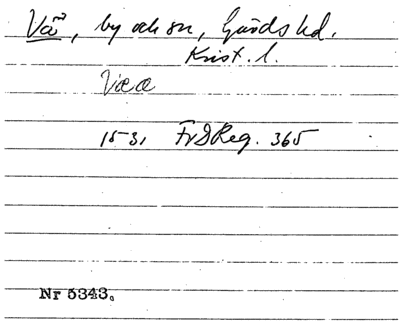 Vä, by och sn, Gärds hd.
Krist. l.
Vææ
1531 FrDReg. 365
Nr 5343.